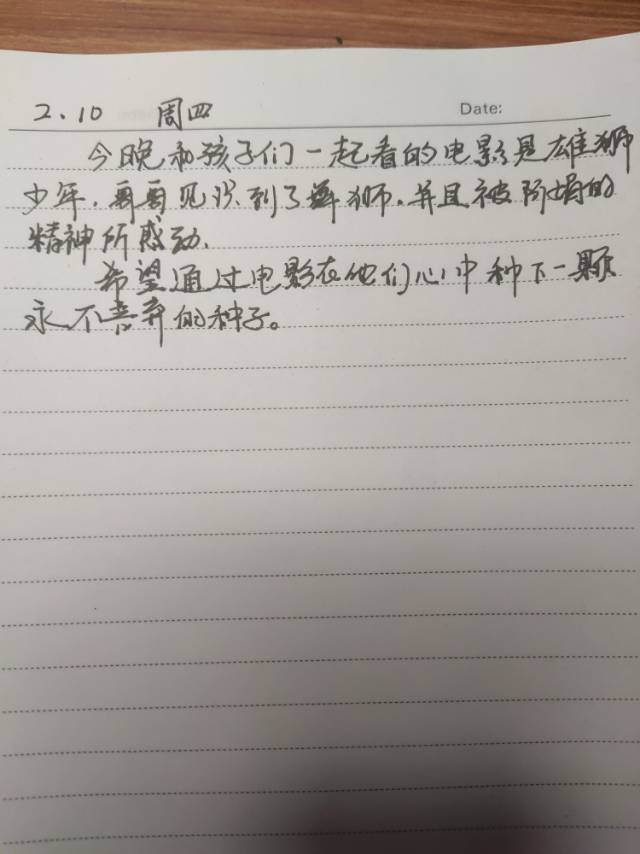 2.10 周四 Date:
今晚和孩子们一起看的电影是雄狮
少年.再看见识到了舞狮.并且被阿娟的
精神所感动.
希望通过电影在他们心中种下一颗
永不言弃的种子。